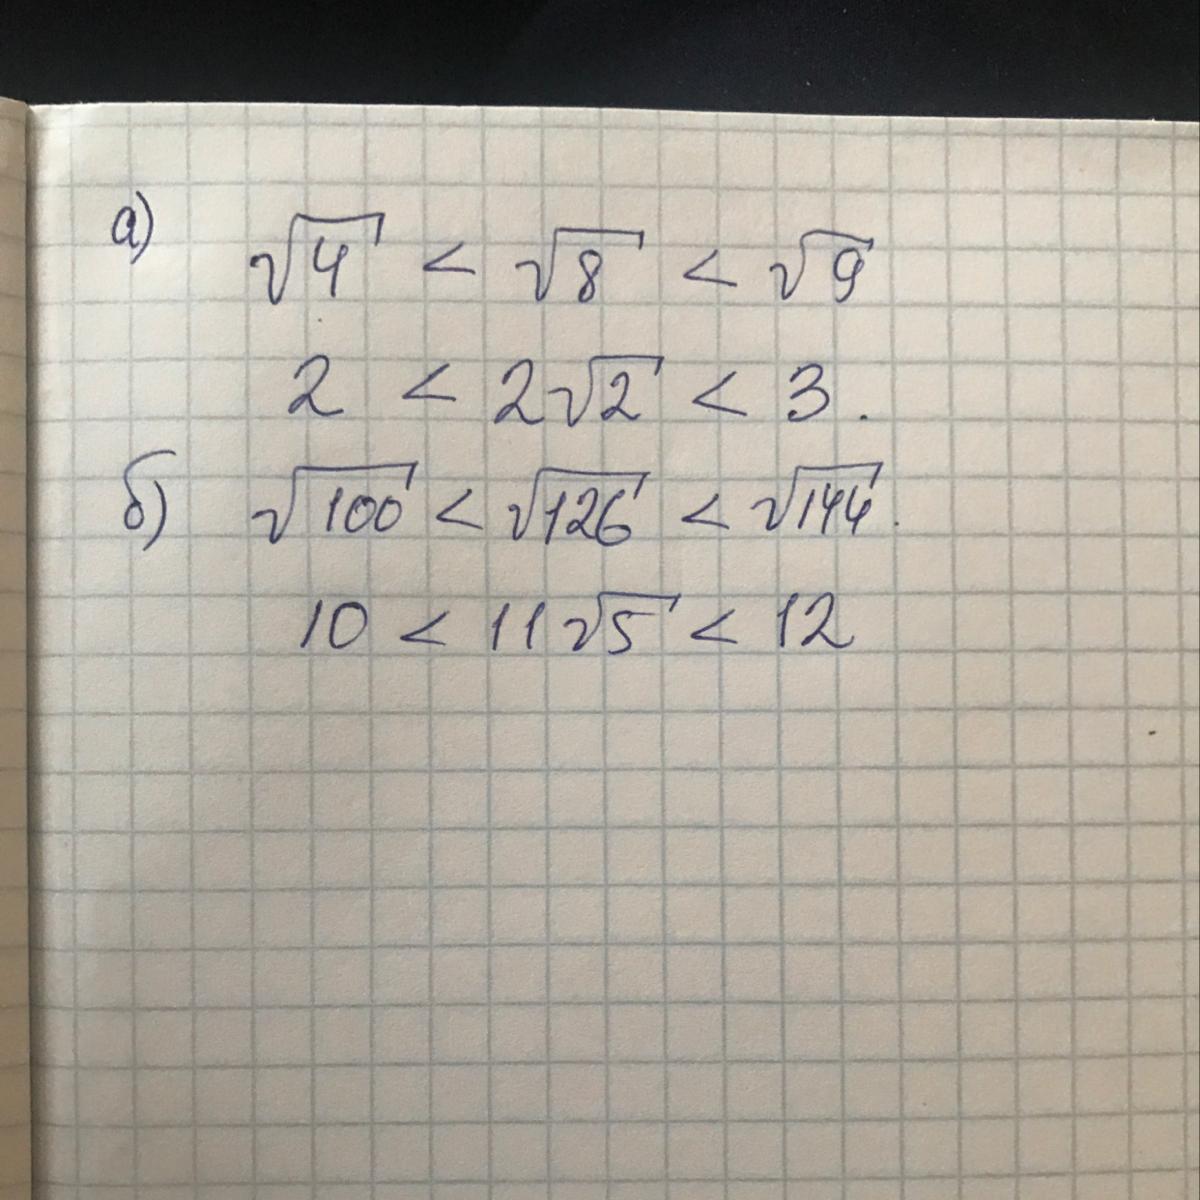 а) √4 < √8 < √9
2 < 2√2 < 3.
б) √100 < √126 < √144.
10 < 11√5 < 12